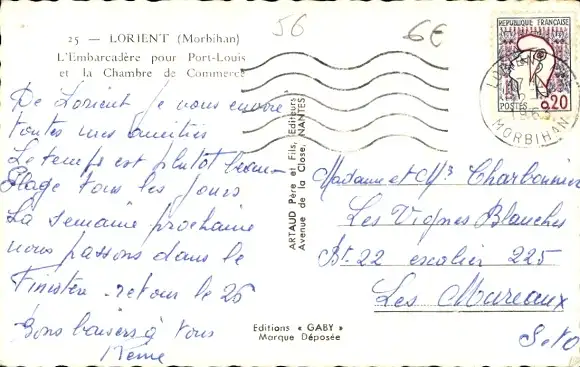 56
6€
25 — LORIENT (Morbihan)
L'Embarcadère pour Port-Louis
et la Chambre de Commerce
REPUBLIQUE FRANÇAISE
POSTES 0,20
MORBIHAN
De Lorient je vous envoie
toutes mes amitiés
Le temps est plutôt beau -
Plage tous les jours
La semaine prochaine
nous passons dans le
Finistère - retour le 26
Bons baisers à tous
ARTAUD Père et Fils, Editeurs
Avenue de la Close, NANTES
Editions « GABY »
Marque Déposée
Madame et Mr Charbonnier
Les Vignes Blanches
Bt. 22 escalier 225
Les Mureaux
S. et O